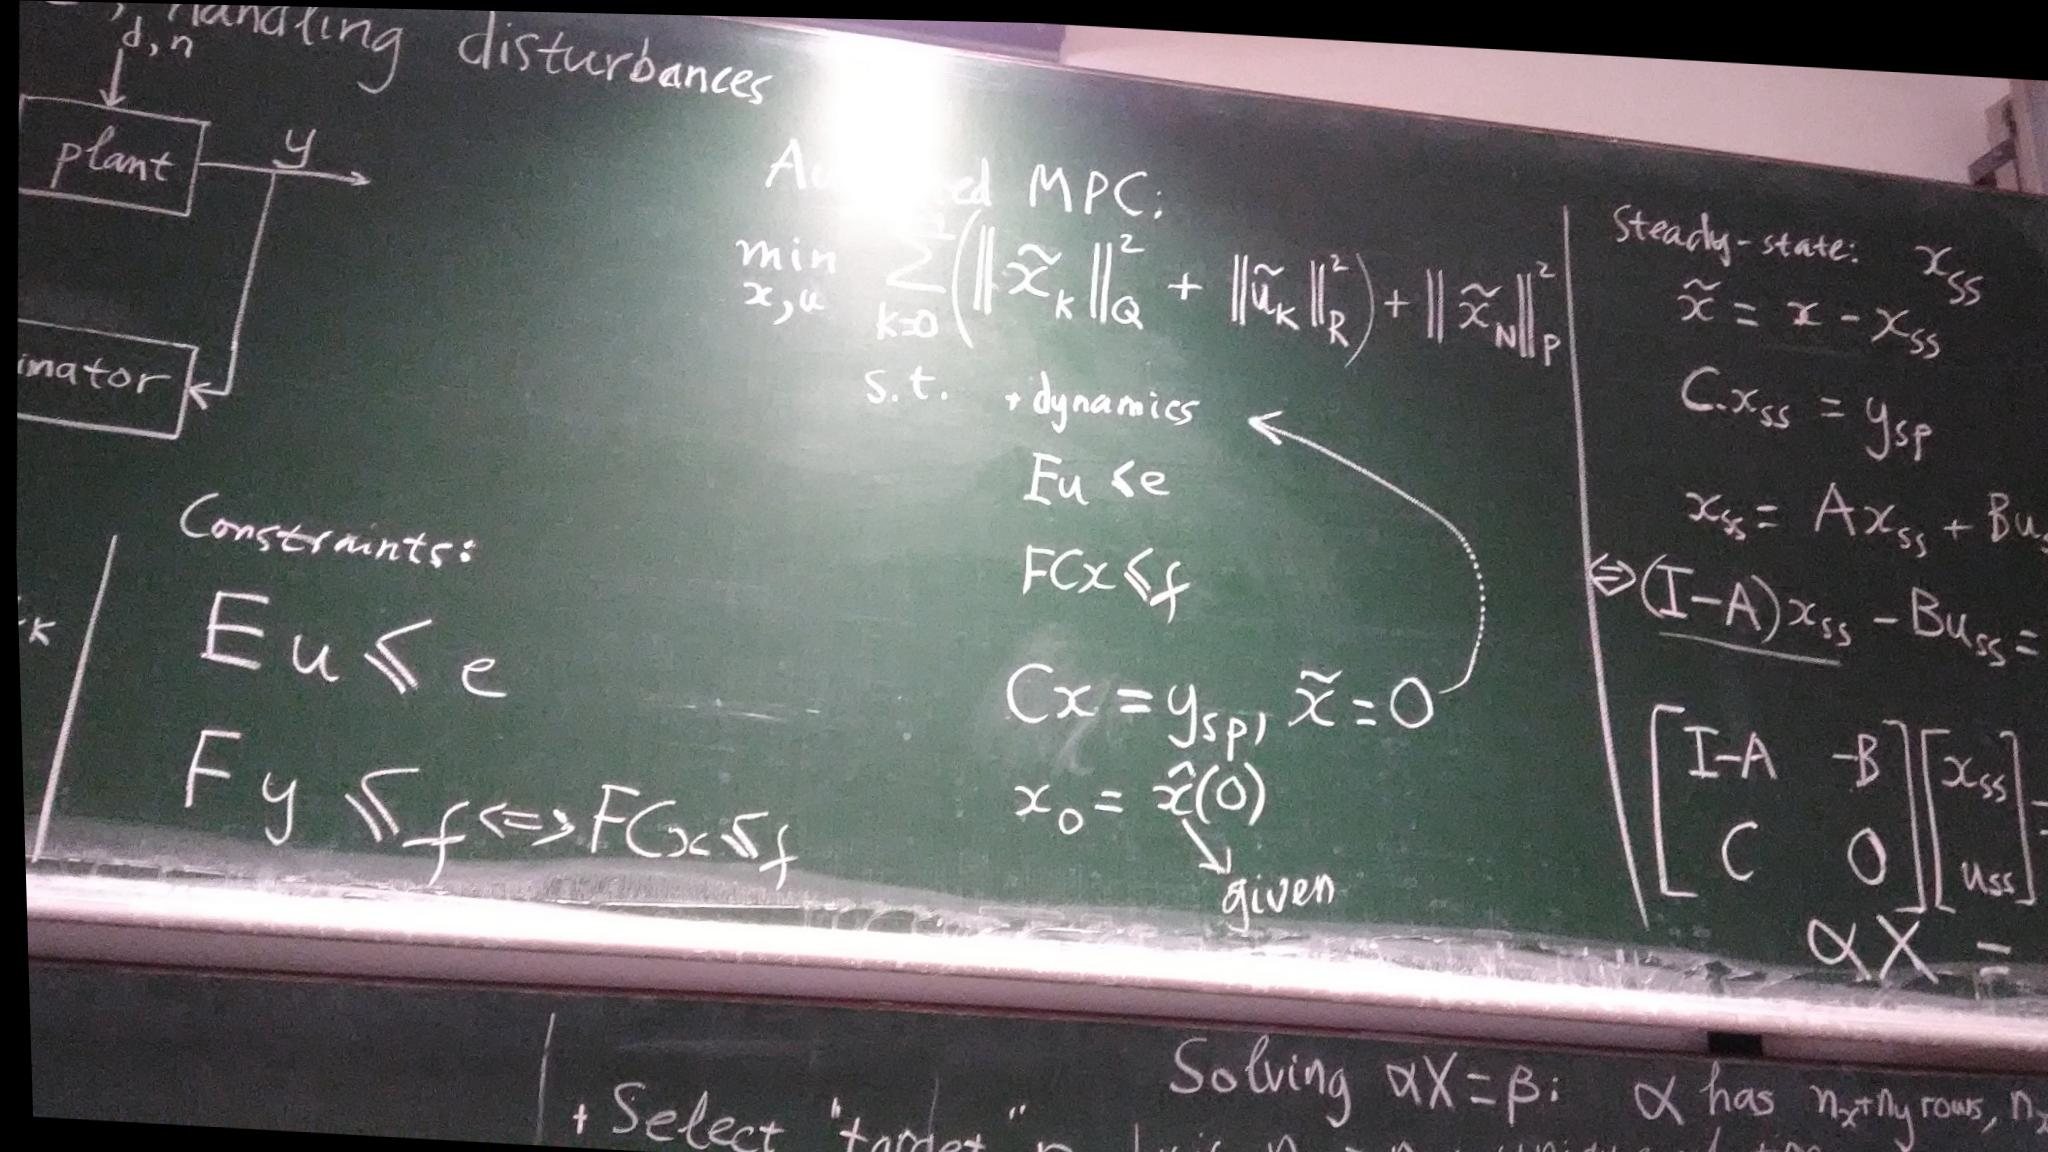 handling disturbances
d, n
plant
y
Constraints:
Eu ⩽ e
Fy ⩽ f <=> FCx ⩽ f
MPC:
min x,u ∑ k=0 (‖x̃_K‖²_Q + ‖ũ_K‖²_R) + ‖x̃_N‖²_P
s.t. + dynamics
Eu ⩽ e
FCx ⩽ f
Cx = y_sp, x̃ = 0
x_0 = x̂(0)
given
Steady-state: x_ss
x̃ = x - x_ss
C.x_ss = y_sp
x_ss = Ax_ss + Bu
⇔ (I-A)x_ss - Bu_ss =
[I-A -B] [x_ss]
[C 0] [u_ss]
αX =
Solving αX = β: α has n_x+n_y rows,
+ Select "target"